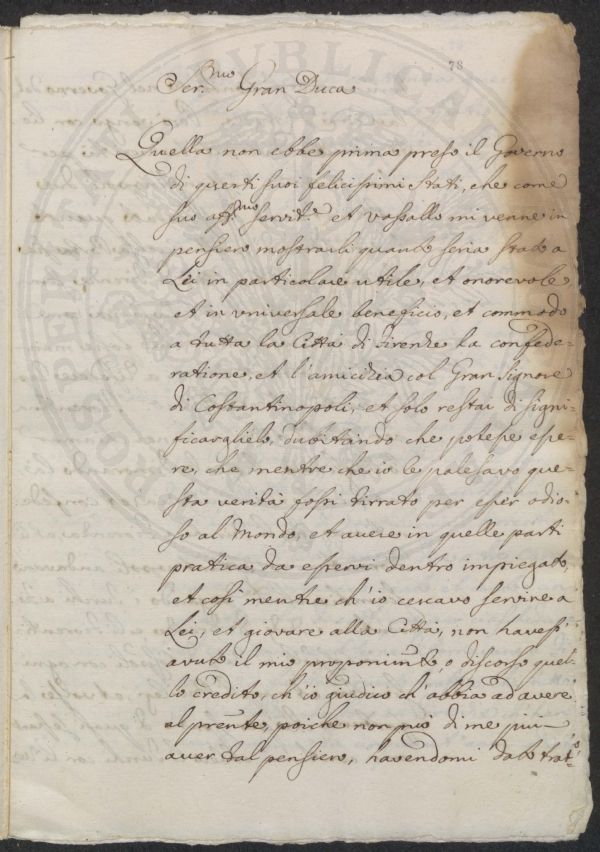 78
Ser.mo Gran Duca
Quella non ebbe prima preso il Governo
di questi suoi felicissimi Stati, che come
suo aff.mo servit.e et vassallo mi venne in
pensiero mostrarli quanto seria stato a
Lei in particolare utile, et onorevole
et in universale beneficio, et commodo
a tutta la Città di Firenze la confede-
ratione, et l'amicizia col Gran Signore
di Costantinopoli, et solo restai di signi-
ficarglielo, dubitando che potesse esse-
re, che, mentre che io le palesavo que-
sta verità fossi tirrato per esser odio-
so al Mondo, et avere in quelle parti
pratica da esservi dentro impiegato,
et così mentre ch'io cercavo servire a
Lei, et giovare alla Città, non havessi
avuto il mio proponimto, o discorso quel-
lo credito, ch'io giudico ch'abbia ad avere
al prente, poiche non può di me più
aver tal pensiero, havendomi dato trat-